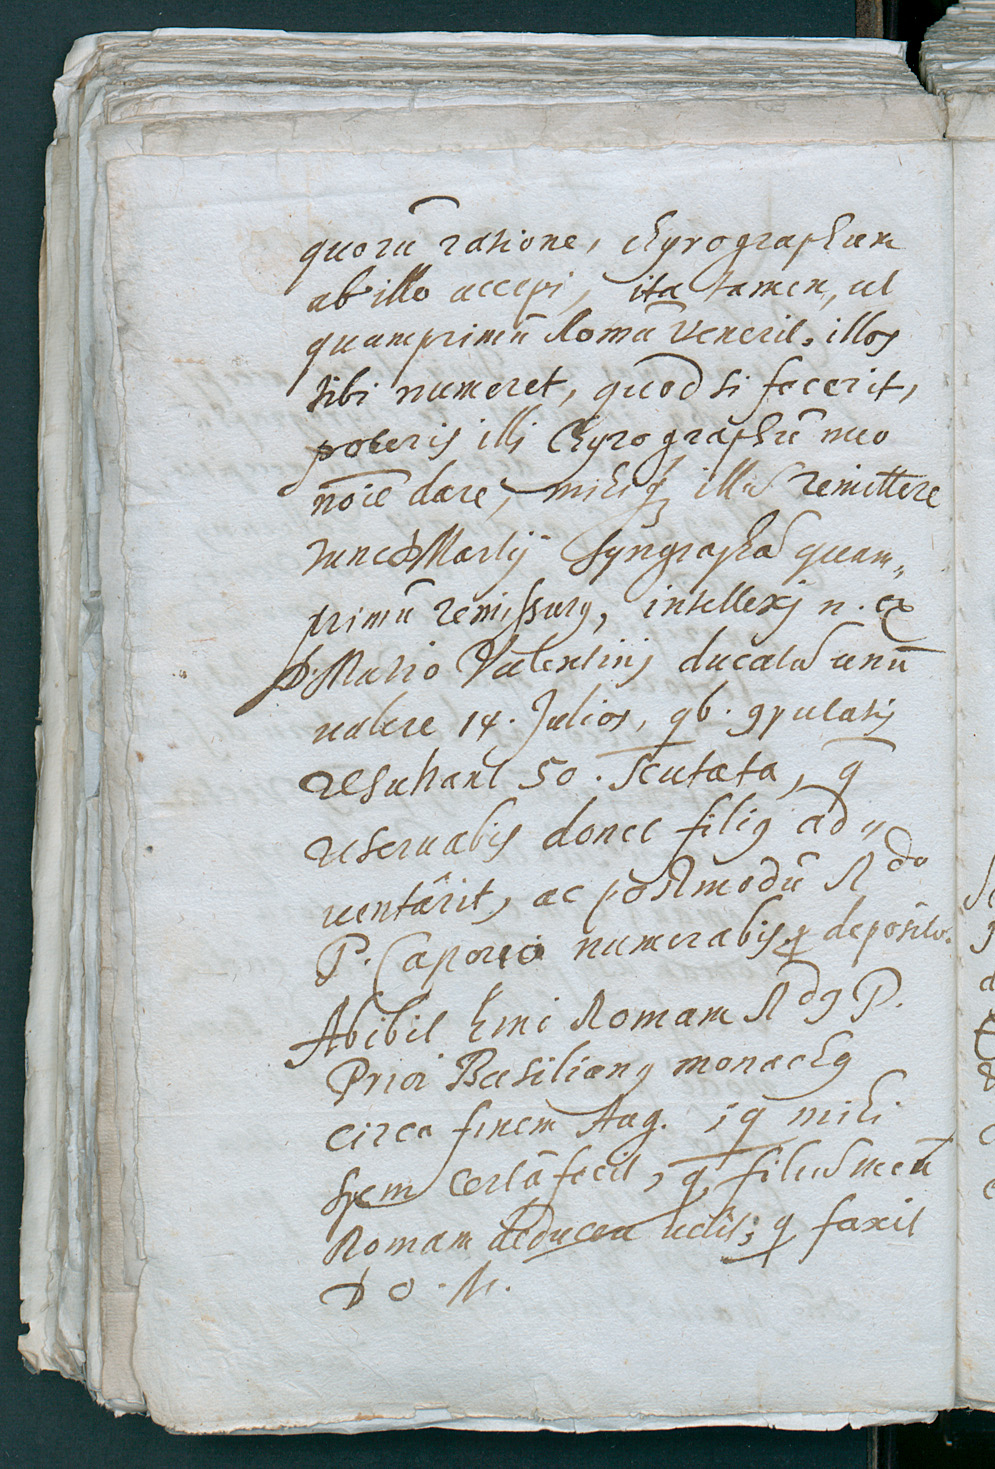 quorū ratione, chyrographum
ab illo accepi, ita tamen, ut
quamprimū Romā venerit, illos
tibi numeret, quod si fecerit,
poteris illi Chyrographū meo
nōie dare, mihiq; illud remittere
tunc D Martij Syngrapha quam„
primū remissurus, intellexi n. ex
D. Mario Valentinis ducatū unū
valere 14. Julios, qb. 9putatis
resultant 50. scutata, q̄
reservabis donec filiꝯ ad„
ventârit, ac postmodū Rdo
P. Caporeo numerabis ꝓ deposito.
Abibit hinc Romam Rdꝯ P.
Prior Basilianꝯ monachꝯ
circa finem Aug. iq mihi
spem certā fecit, q̄ filiū meū
Romam deducere velit; q faxit
D O. M.